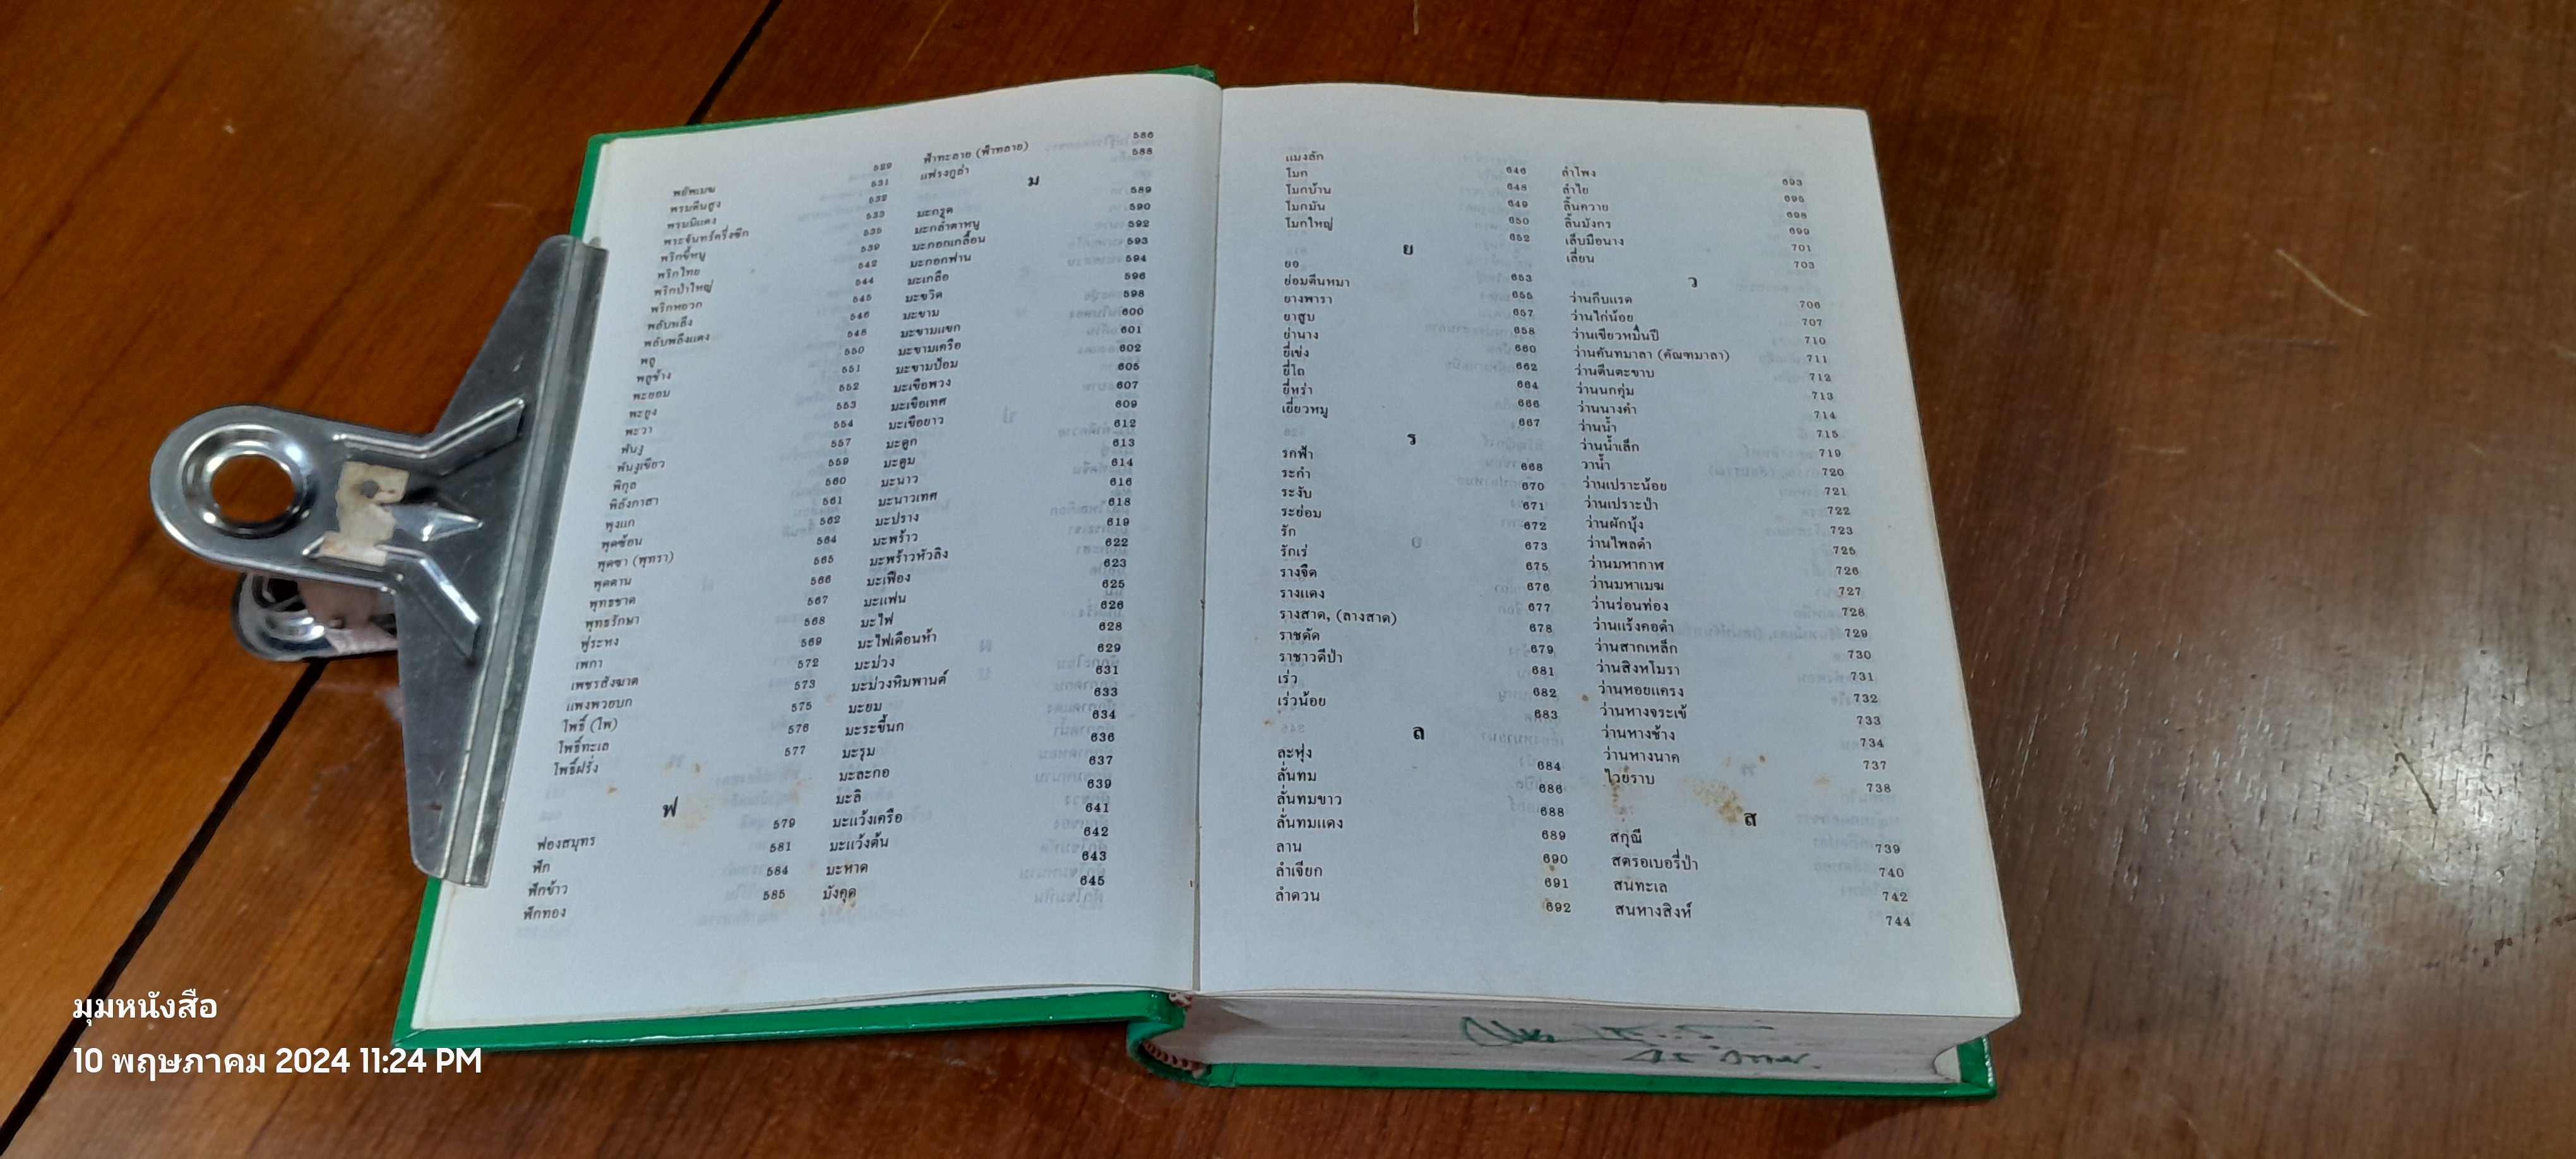 พยัพเมฆ 529
พรมตีนสูง 531
พรมมิแดง 532
พระจันทร์ครึ่งซีก 533
พริกขี้หนู 535
พริกไทย 539
พริกป่าใหญ่ 542
พริกหยวก 544
พลับพลึง 545
พลับพลึงแดง 546
พลู 548
พลูช้าง 550
พะยอม 551
พะยูง 552
พะวา 553
พันงู 554
พันงูเขียว 557
พิกุล 559
พิลังกาสา 560
พุงแก 561
พุดซ้อน 562
พุดซา (พุทรา) 564
พุดตาน 565
พุทธชาด 566
พุทธรักษา 567
พู่ระหง 568
เพกา 569
เพชรสังฆาต 572
แพงพวยบก 573
โพธิ์ (โพ) 575
โพธิ์ทะเล 576
โพธิ์ฝรั่ง 577
ฟ
ฟองสมุทร 579
ฟัก 581
ฟักข้าว 584
ฟักทอง 585
ฟ้าทะลาย (ฟ้าทลาย) 586
แฟรงกูล่า 588
ม
มะกรูด 589
มะกล่ำตาหนู 590
มะกอกเกลื้อน 592
มะกอกฟาน 593
มะเกลือ 594
มะขวิด 596
มะขาม 598
มะขามแขก 600
มะขามเครือ 601
มะขามป้อม 602
มะเขือพวง 605
มะเขือเทศ 607
มะเขือยาว 609
มะดูก 612
มะตูม 613
มะนาว 614
มะนาวเทศ 616
มะปราง 618
มะพร้าว 619
มะพร้าวหัวลิง 622
มะเฟือง 623
มะแฟน 625
มะไฟ 626
มะไฟเดือนห้า 628
มะม่วง 629
มะม่วงหิมพานต์ 631
มะยม 633
มะระขี้นก 634
มะรุม 636
มะละกอ 637
มะลิ 639
มะแว้งเครือ 641
มะแว้งต้น 642
มะหาด 643
มังคุด 645
แมงลัก 646
โมก 648
โมกบ้าน 649
โมกมัน 650
โมกใหญ่ 652
ย
ยอ 653
ย่อมตีนหมา 655
ยางพารา 657
ยาสูบ 658
ย่านาง 660
ยี่เข่ง 662
ยี่โถ 664
ยี่หร่า 666
เยี่ยวหมู 667
ร
รกฟ้า 668
ระกำ 670
ระงับ 671
ระย่อม 672
รัก 673
รักเร่ 675
รางจืด 676
รางแดง 677
รางสาด, (ลางสาด) 678
ราชดัด 679
ราชาวดีป่า 681
เร่ว 682
เร่วน้อย 683
ล
ละหุ่ง 684
ลั่นทม 686
ลั่นทมขาว 688
ลั่นทมแดง 689
ลาน 690
ลำเจียก 691
ลำดวน 692
ลำโพง 693
ลำไย 695
ลิ้นควาย 698
ลิ้นมังกร 699
เล็บมือนาง 701
เลี่ยน 703
ว
ว่านกีบแรด 706
ว่านไก่น้อย 707
ว่านเขียวหมื่นปี 710
ว่านคันทมาลา (คัณฑมาลา) 711
ว่านตีนตะขาบ 712
ว่านนกคุ่ม 713
ว่านนางคำ 714
ว่านน้ำ 715
ว่านน้ำเล็ก 719
วาน้ำ 720
ว่านเปราะน้อย 721
ว่านเปราะป่า 722
ว่านผักบุ้ง 723
ว่านไพลดำ 725
ว่านมหากาฬ 726
ว่านมหาเมฆ 727
ว่านร่อนทอง 728
ว่านแร้งคอดำ 729
ว่านสากเหล็ก 730
ว่านสิงหโมรา 731
ว่านหอยแครง 732
ว่านหางจระเข้ 733
ว่านหางช้าง 734
ว่านหางนาค 737
ไวยราบ 738
ส
สกุณี 739
สตรอเบอรี่ป่า 740
สนทะเล 742
สนหางสิงห์ 744
มุมหนังสือ
10 พฤษภาคม 2024 11:24 PM